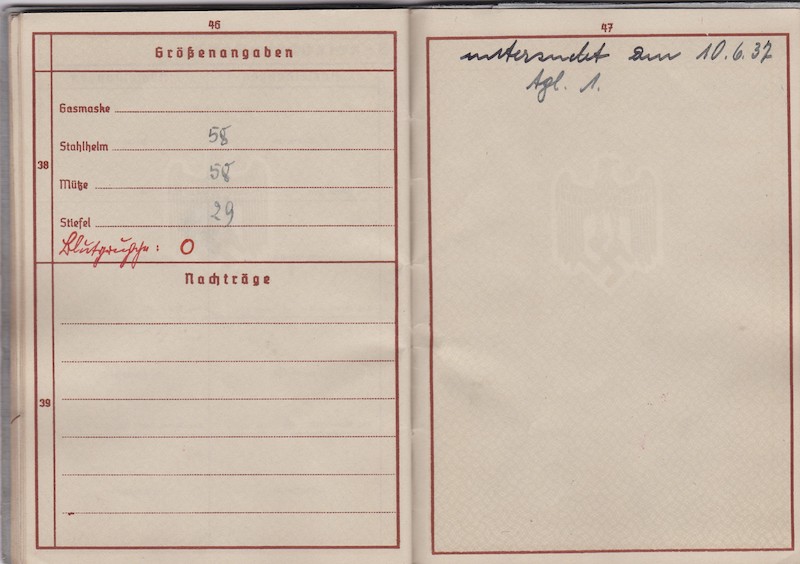 46
Größenangaben
Gasmaske
Stahlhelm 58
38
Mütze 58
Stiefel 29
Blutgruppe: O
Nachträge
39
47
untersucht am 10.6.37
Tgl. 1.